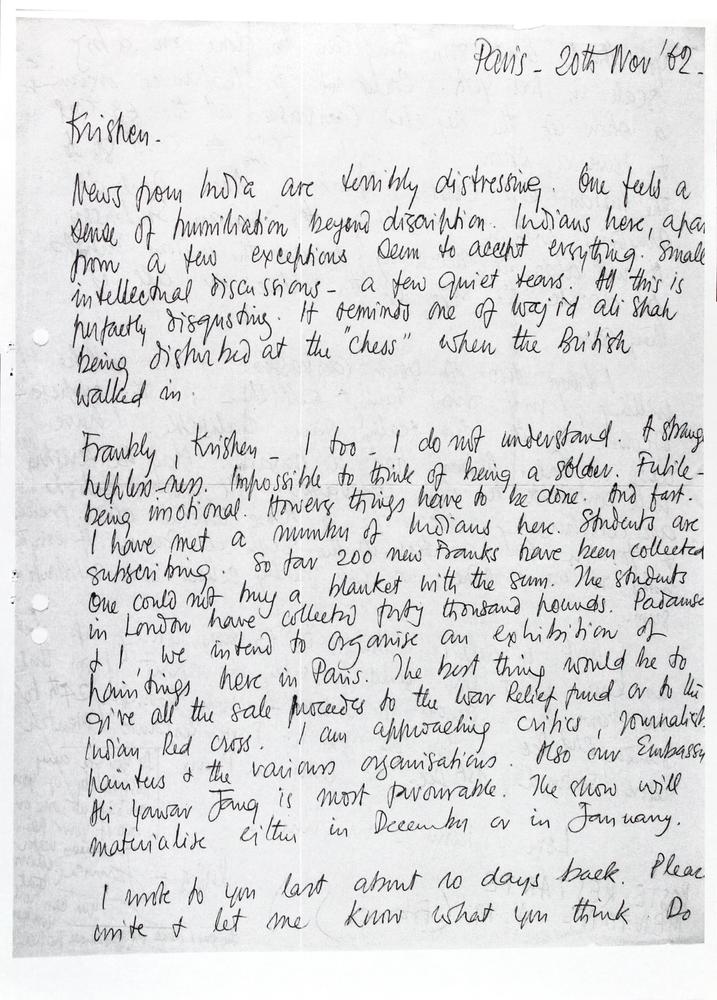 Paris - 20th Nov '62.
Krishen.
News from India are terribly distressing. One feels a
sense of humiliation beyond discription. Indians here, apar
from a few exceptions seem to accept erything. Small
intellectual discussions - a few quiet tears. All this is
perfectly disgusting. It reminds one of Wajid ali Shah
being disturbed at the "chess" when the British
walked in.
Frankly, Krishen - I too - I do not understand. A strang
helpless-ness. Impossible to think of being a solder. Futile -
being imotional. Howers things have to be done. And fast.
I have met a number of Indians here. Students are
subscribing. So far 200 new Franks have been collected
One could not buy a blanket with the sum. The students
in London have collected forty thousand pounds. Padamse
& I, we intend to organise an exhibition of
paintings here in Paris. The best thing would be to
give all the sale procedes to the War Relief fund or to the
Indian Red cross. I am approaching critics, journalist
painters & the various organisations. Also our Embassy
Ali Yawar Jang is most favourable. The show will
materialise either in December or in January.
I wrote to you last about 10 days back. Pleas
write & let me know what you think. Do